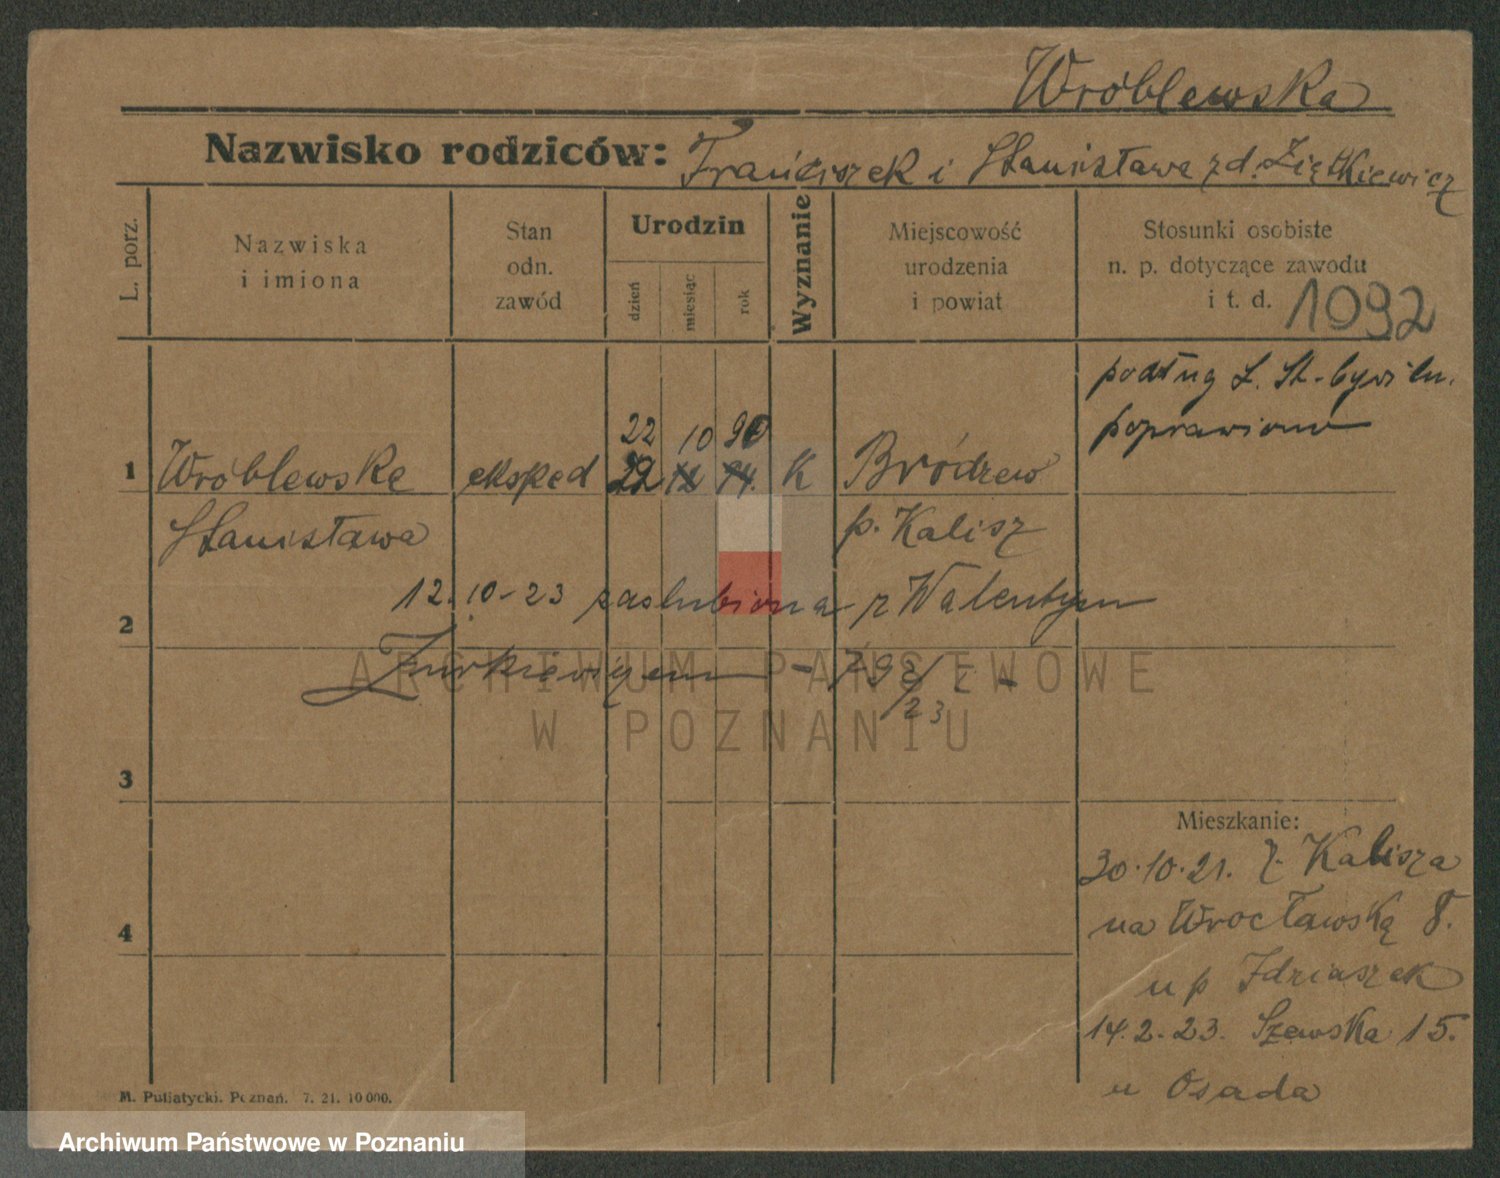 Wróblewska
Nazwisko rodziców: Franciszek i Stanisława zd. Ziętkiewicz
L. porz.
Nazwiska
i imiona
Stan
odn.
zawód
Urodzin
dzień
miesiąc
rok
Wyznanie
Miejscowość
urodzenia
i powiat
Stosunki osobiste
n. p. dotyczące zawodu
i t. d. 1092
podług
poprawiono
22 10 90
1 Wróblewska eksped 22 12 94. K Bródzew
Stanisława p. Kalisz
12.10-23 zaslubiona z Walentym
2
ARCHIWUM PAŃSTWOWE
W POZNANIU
23
3
Mieszkanie:
30.10.21. z Kalisza
4 na Wrocławską 8.
u p Idziaszek
14.2.23. Szewska 15.
u Osada
M. Puljatycki. Poznań. 7. 21. 10 000.
Archiwum Państwowe w Poznaniu